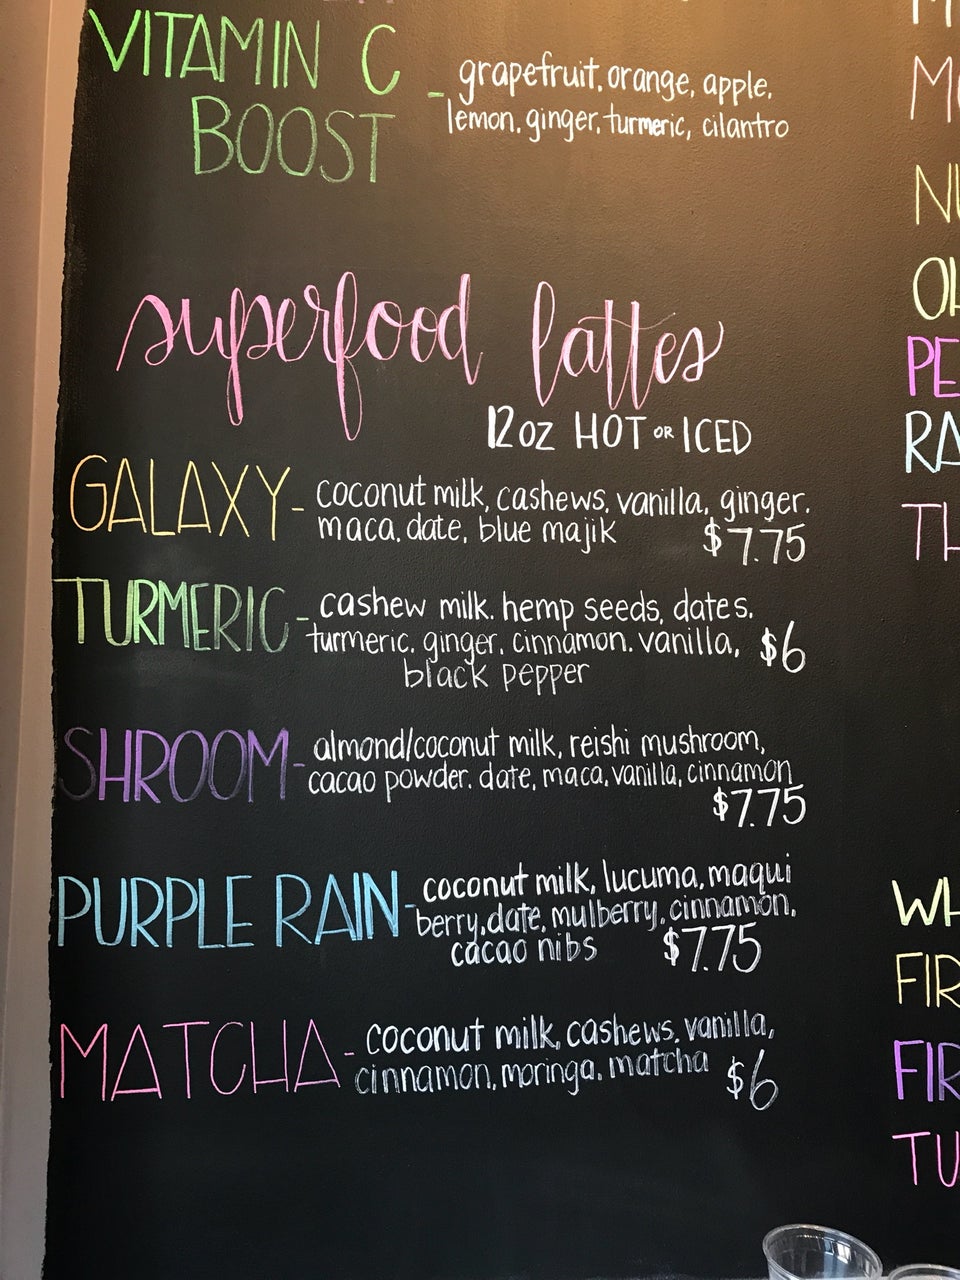 VITAMIN C
BOOST
- grapefruit, orange, apple,
lemon, ginger, turmeric, cilantro
superfood lattes
12oz HOT or ICED
GALAXY - coconut milk, cashews, vanilla, ginger,
maca, date, blue majik $7.75
TURMERIC - cashew milk, hemp seeds, dates,
turmeric, ginger, cinnamon, vanilla, $6
black pepper
SHROOM - almond/coconut milk, reishi mushroom,
cacao powder, date, maca, vanilla, cinnamon
$7.75
PURPLE RAIN - coconut milk, lucuma, maqui
berry, date, mulberry, cinnamon,
cacao nibs $7.75
MATCHA - coconut milk, cashews, vanilla,
cinnamon, moringa, matcha $6